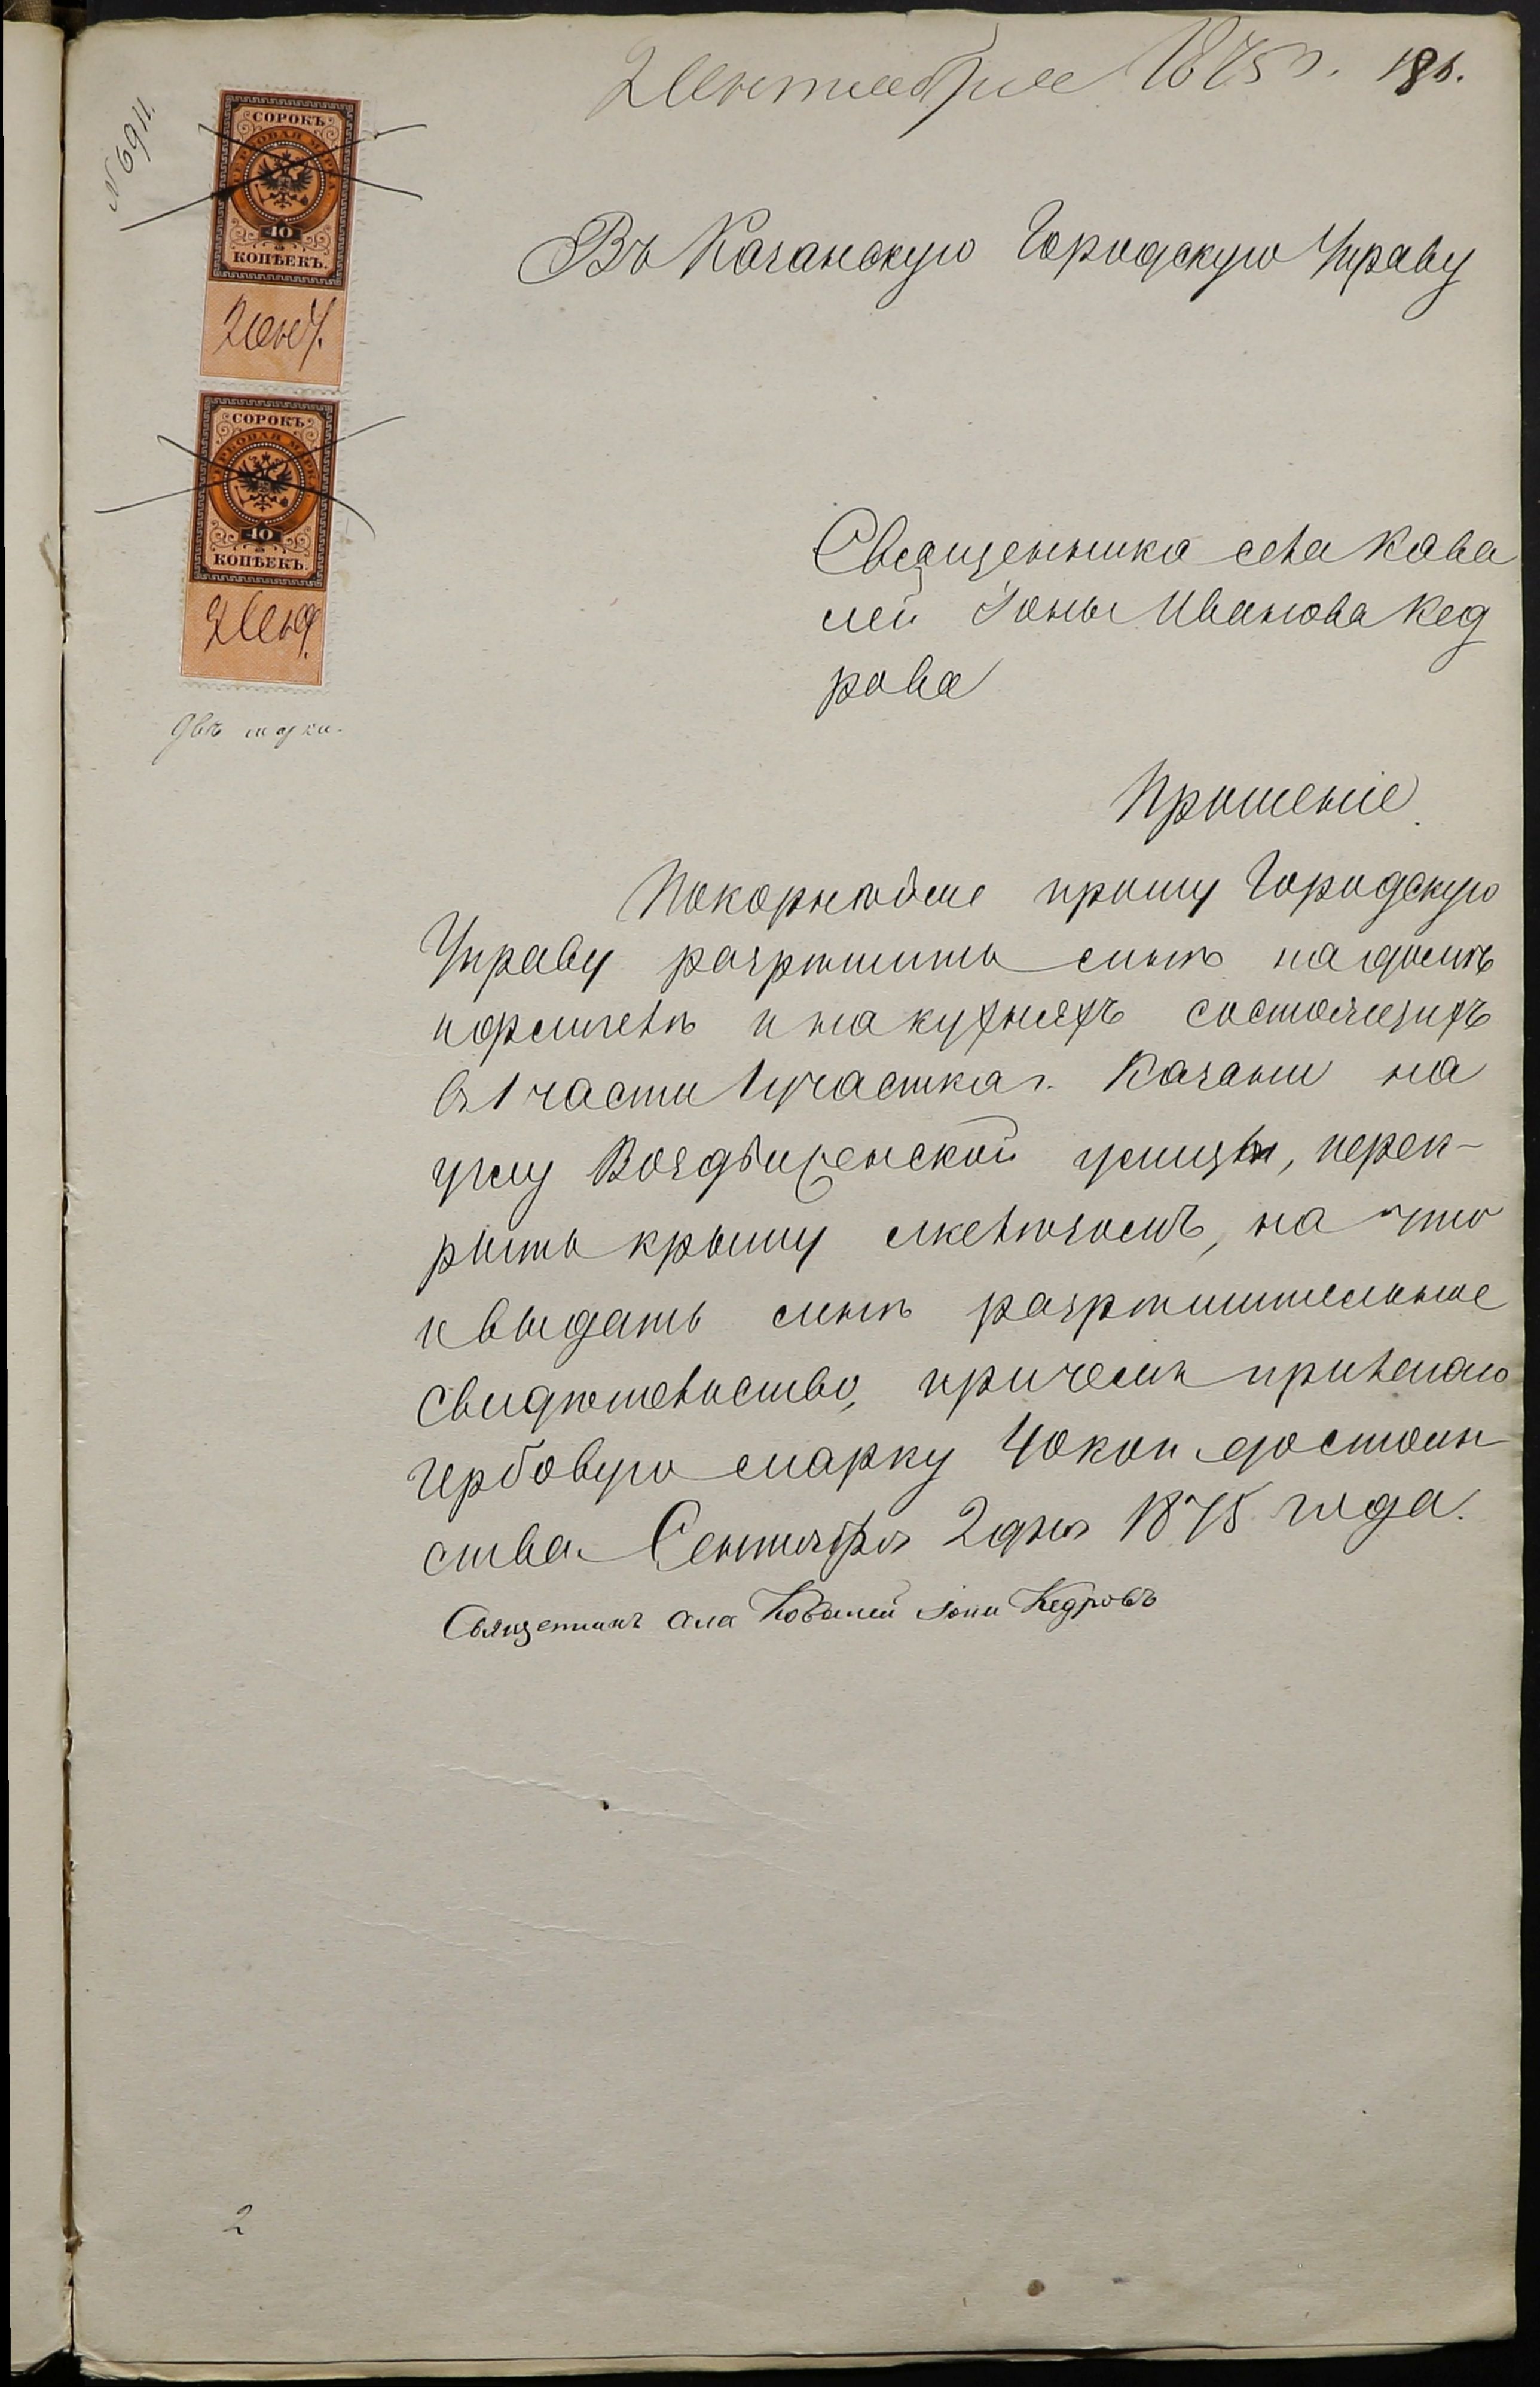 2 Сентября 1875 г. 181.
N 6911.
СОРОКЪ
ГЕРБОВАЯ МАРКА
40
КОПѢЕКЪ.
2 Сент.
СОРОКЪ
ГЕРБОВАЯ МАРКА
40
КОПѢЕКЪ.
2 Сент.
Двѣ марки.
Въ Казанскую Городскую Управу
Священника села Кава
лей Іоны Иванова Кед
рова
Прошеніе.
Покорнѣйше прошу Городскую
Управу разрѣшить мнѣ на домѣ
и на кухняхъ состоящихъ
въ 1 части 1 участка г. Казани на
углу Воздвиженской улицы, перек-
рыть крышу желѣзомъ, на что
и выдать мнѣ разрѣшительное
свидѣтельство, причемъ прилагаю
гербовую марку 40 коп достоин
ства. Сентября 2 дня 1875 года.
Священникъ села Ковалей Іона Кедровъ
2